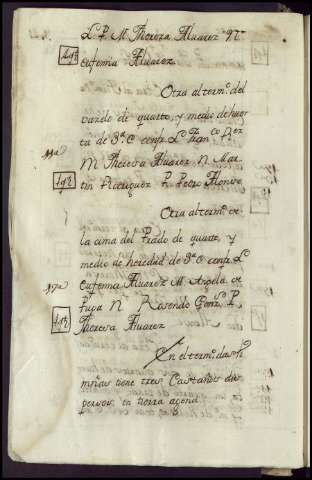 L. P. M. Theresa Alvarez N.
Eufemia Alvarez
Otra al term.º del
de quarto, y medio de huer
ta de 3.ª C confr. L. Fran.co Pz
M. Theresa Alvarez N. Mar
tin Rodriguez P. Pedro Alonso
Otra al term.º de
la cima del Prado de quarto, y
medio de heredad de 3.ª C confr. L.
Eufemia Alvarez M. Angela de
Puga N. Rosendo Gonz.z P.
Theresa Alvarez
En el term.º das
tiene tres Castaños dis
persos en tierra agena